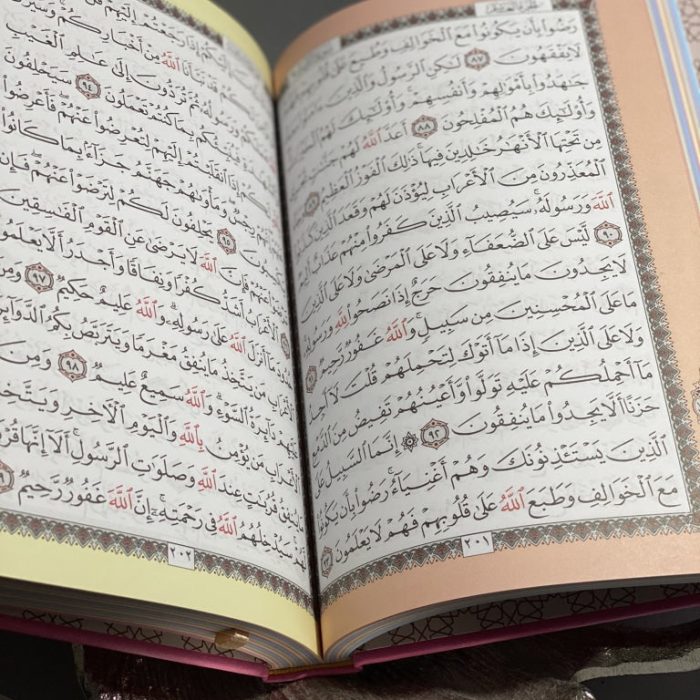 الجزء العاشر
رَضُوا۟ بِأَن يَكُونُوا۟ مَعَ ٱلْخَوَالِفِ وَطُبِعَ عَلَىٰ
لَا يَفْقَهُونَ ٨٧ لَٰكِنِ ٱلرَّسُولُ وَٱلَّذِينَ
جَٰهَدُوا۟ بِأَمْوَٰلِهِمْ وَأَنفُسِهِمْ ۚ وَأُو۟لَٰٓئِكَ لَهُمُ
وَأُو۟لَٰٓئِكَ هُمُ ٱلْمُفْلِحُونَ ٨٨ أَعَدَّ ٱللَّهُ لَهُمْ جَنَّٰتٍ
مِن تَحْتِهَا ٱلْأَنْهَٰرُ خَٰلِدِينَ فِيهَا ۚ ذَٰلِكَ ٱلْفَوْزُ ٱلْعَظِيمُ ٨٩
ٱلْمُعَذِّرُونَ مِنَ ٱلْأَعْرَابِ لِيُؤْذَنَ لَهُمْ وَقَعَدَ ٱلَّذِينَ كَذَبُوا۟
ٱللَّهَ وَرَسُولَهُۥ ۚ سَيُصِيبُ ٱلَّذِينَ كَفَرُوا۟ مِنْهُمْ عَذَابٌ أَلِيمٌ
٩٠ لَّيْسَ عَلَى ٱلضُّعَفَآءِ وَلَا عَلَى ٱلْمَرْضَىٰ وَلَا عَلَى ٱلَّذِينَ
لَا يَجِدُونَ مَا يُنفِقُونَ حَرَجٌ إِذَا نَصَحُوا۟ لِلَّهِ وَرَسُولِهِۦ
مَا عَلَى ٱلْمُحْسِنِينَ مِن سَبِيلٍ ۚ وَٱللَّهُ غَفُورٌ رَّحِيمٌ ٩١
وَلَا عَلَى ٱلَّذِينَ إِذَا مَآ أَتَوْكَ لِتَحْمِلَهُمْ قُلْتَ لَآ أَجِدُ
مَآ أَحْمِلُكُمْ عَلَيْهِ تَوَلَّوا۟ وَّأَعْيُنُهُمْ تَفِيضُ مِنَ ٱلدَّمْعِ
حَزَنًا أَلَّا يَجِدُوا۟ مَا يُنفِقُونَ ٩٢ ۞ إِنَّمَا ٱلسَّبِيلُ عَلَى
ٱلَّذِينَ يَسْتَـْٔذِنُونَكَ وَهُمْ أَغْنِيَآءُ ۚ رَضُوا۟ بِأَن يَكُونُوا۟
مَعَ ٱلْخَوَالِفِ وَطَبَعَ ٱللَّهُ عَلَىٰ قُلُوبِهِمْ فَهُمْ لَا يَعْلَمُونَ ٩٣
٢٠١
إِلَيْكُمْ إِذَا رَجَعْتُمْ إِلَيْهِمْ
لَكُمْ قَدْ نَبَّأَنَا ٱللَّهُ مِنْ أَخْبَارِكُمْ ۚ وَسَيَرَى
وَرَسُولُهُۥ ثُمَّ تُرَدُّونَ إِلَىٰ عَٰلِمِ ٱلْغَيْبِ
فَيُنَبِّئُكُم بِمَا كُنتُمْ تَعْمَلُونَ ٩٤ سَيَحْلِفُونَ
لَكُمْ إِذَا ٱنقَلَبْتُمْ إِلَيْهِمْ لِتُعْرِضُوا۟ عَنْهُمْ ۖ فَأَعْرِضُوا۟
رِجْسٌ ۖ وَمَأْوَىٰهُمْ جَهَنَّمُ جَزَآءًۢ بِمَا كَانُوا۟
٩٥ يَحْلِفُونَ لَكُمْ لِتَرْضَوْا۟ عَنْهُمْ ۖ فَإِن
عَنْهُمْ فَإِنَّ ٱللَّهَ لَا يَرْضَىٰ عَنِ ٱلْقَوْمِ ٱلْفَٰسِقِينَ
ٱلْأَعْرَابُ أَشَدُّ كُفْرًا وَنِفَاقًا وَأَجْدَرُ أَلَّا يَعْلَمُوا۟
مَآ أَنزَلَ ٱللَّهُ عَلَىٰ رَسُولِهِۦ ۗ وَٱللَّهُ عَلِيمٌ حَكِيمٌ ٩٧ وَمِنَ
ٱلْأَعْرَابِ مَن يَتَّخِذُ مَا يُنفِقُ مَغْرَمًا وَيَتَرَبَّصُ بِكُمُ ٱلدَّوَآئِرَ
عَلَيْهِمْ دَآئِرَةُ ٱلسَّوْءِ ۗ وَٱللَّهُ سَمِيعٌ عَلِيمٌ ٩٨ وَمِنَ
ٱلْأَعْرَابِ مَن يُؤْمِنُ بِٱللَّهِ وَٱلْيَوْمِ ٱلْـَٔاخِرِ وَيَتَّخِذُ
مَا يُنفِقُ قُرُبَٰتٍ عِندَ ٱللَّهِ وَصَلَوَٰتِ ٱلرَّسُولِ ۚ أَلَآ إِنَّهَا قُرْبَةٌ
لَّهُمْ ۚ سَيُدْخِلُهُمُ ٱللَّهُ فِى رَحْمَتِهِۦٓ ۗ إِنَّ ٱللَّهَ غَفُورٌ رَّحِيمٌ
٢٠٢